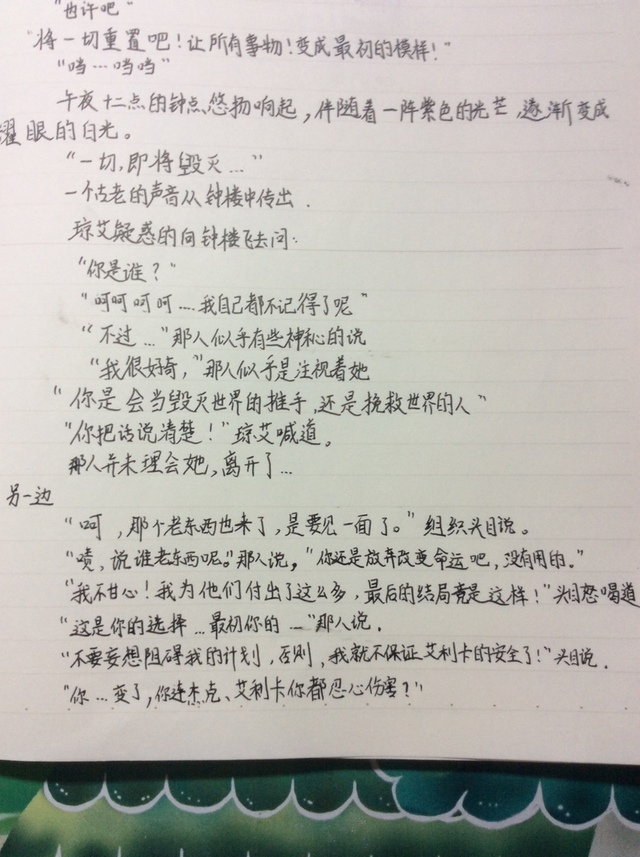 "也许吧"
"将一切重置吧！让所有事物！变成最初的模样！"
"当…当当"
午夜十二点的钟点悠扬响起，伴随着一阵紫色的光芒，逐渐变成
耀眼的白光。
"一切，即将毁灭…"
一个古老的声音从钟楼中传出．
琼艾疑惑的向钟楼飞去问：
"你是谁？"
"呵呵呵呵……我自己都不记得了呢"
"不过…"那人似乎有些神秘的说
"我很好奇，"那人似乎是注视着她
"你是会当毁灭世界的推手，还是挽救世界的人"
"你把话说清楚！"琼艾喊道。
那人并未理会她，离开了…
另一边
"呵，那个老东西也来了，是要见一面了。"组织头目说。
"啧，说谁老东西呢。"那人说，"你还是放弃改变命运吧，没有用的。"
"我不甘心！我为他们付出了这么多，最后的结局竟是这样！"头目怒喝道
"这是你的选择…最初你的…"那人说．
"不要妄想阻碍我的计划，否则，我就不保证艾利卡的安全了！"头目说．
"你…变了，你连杰克、艾利卡你都忍心伤害？"